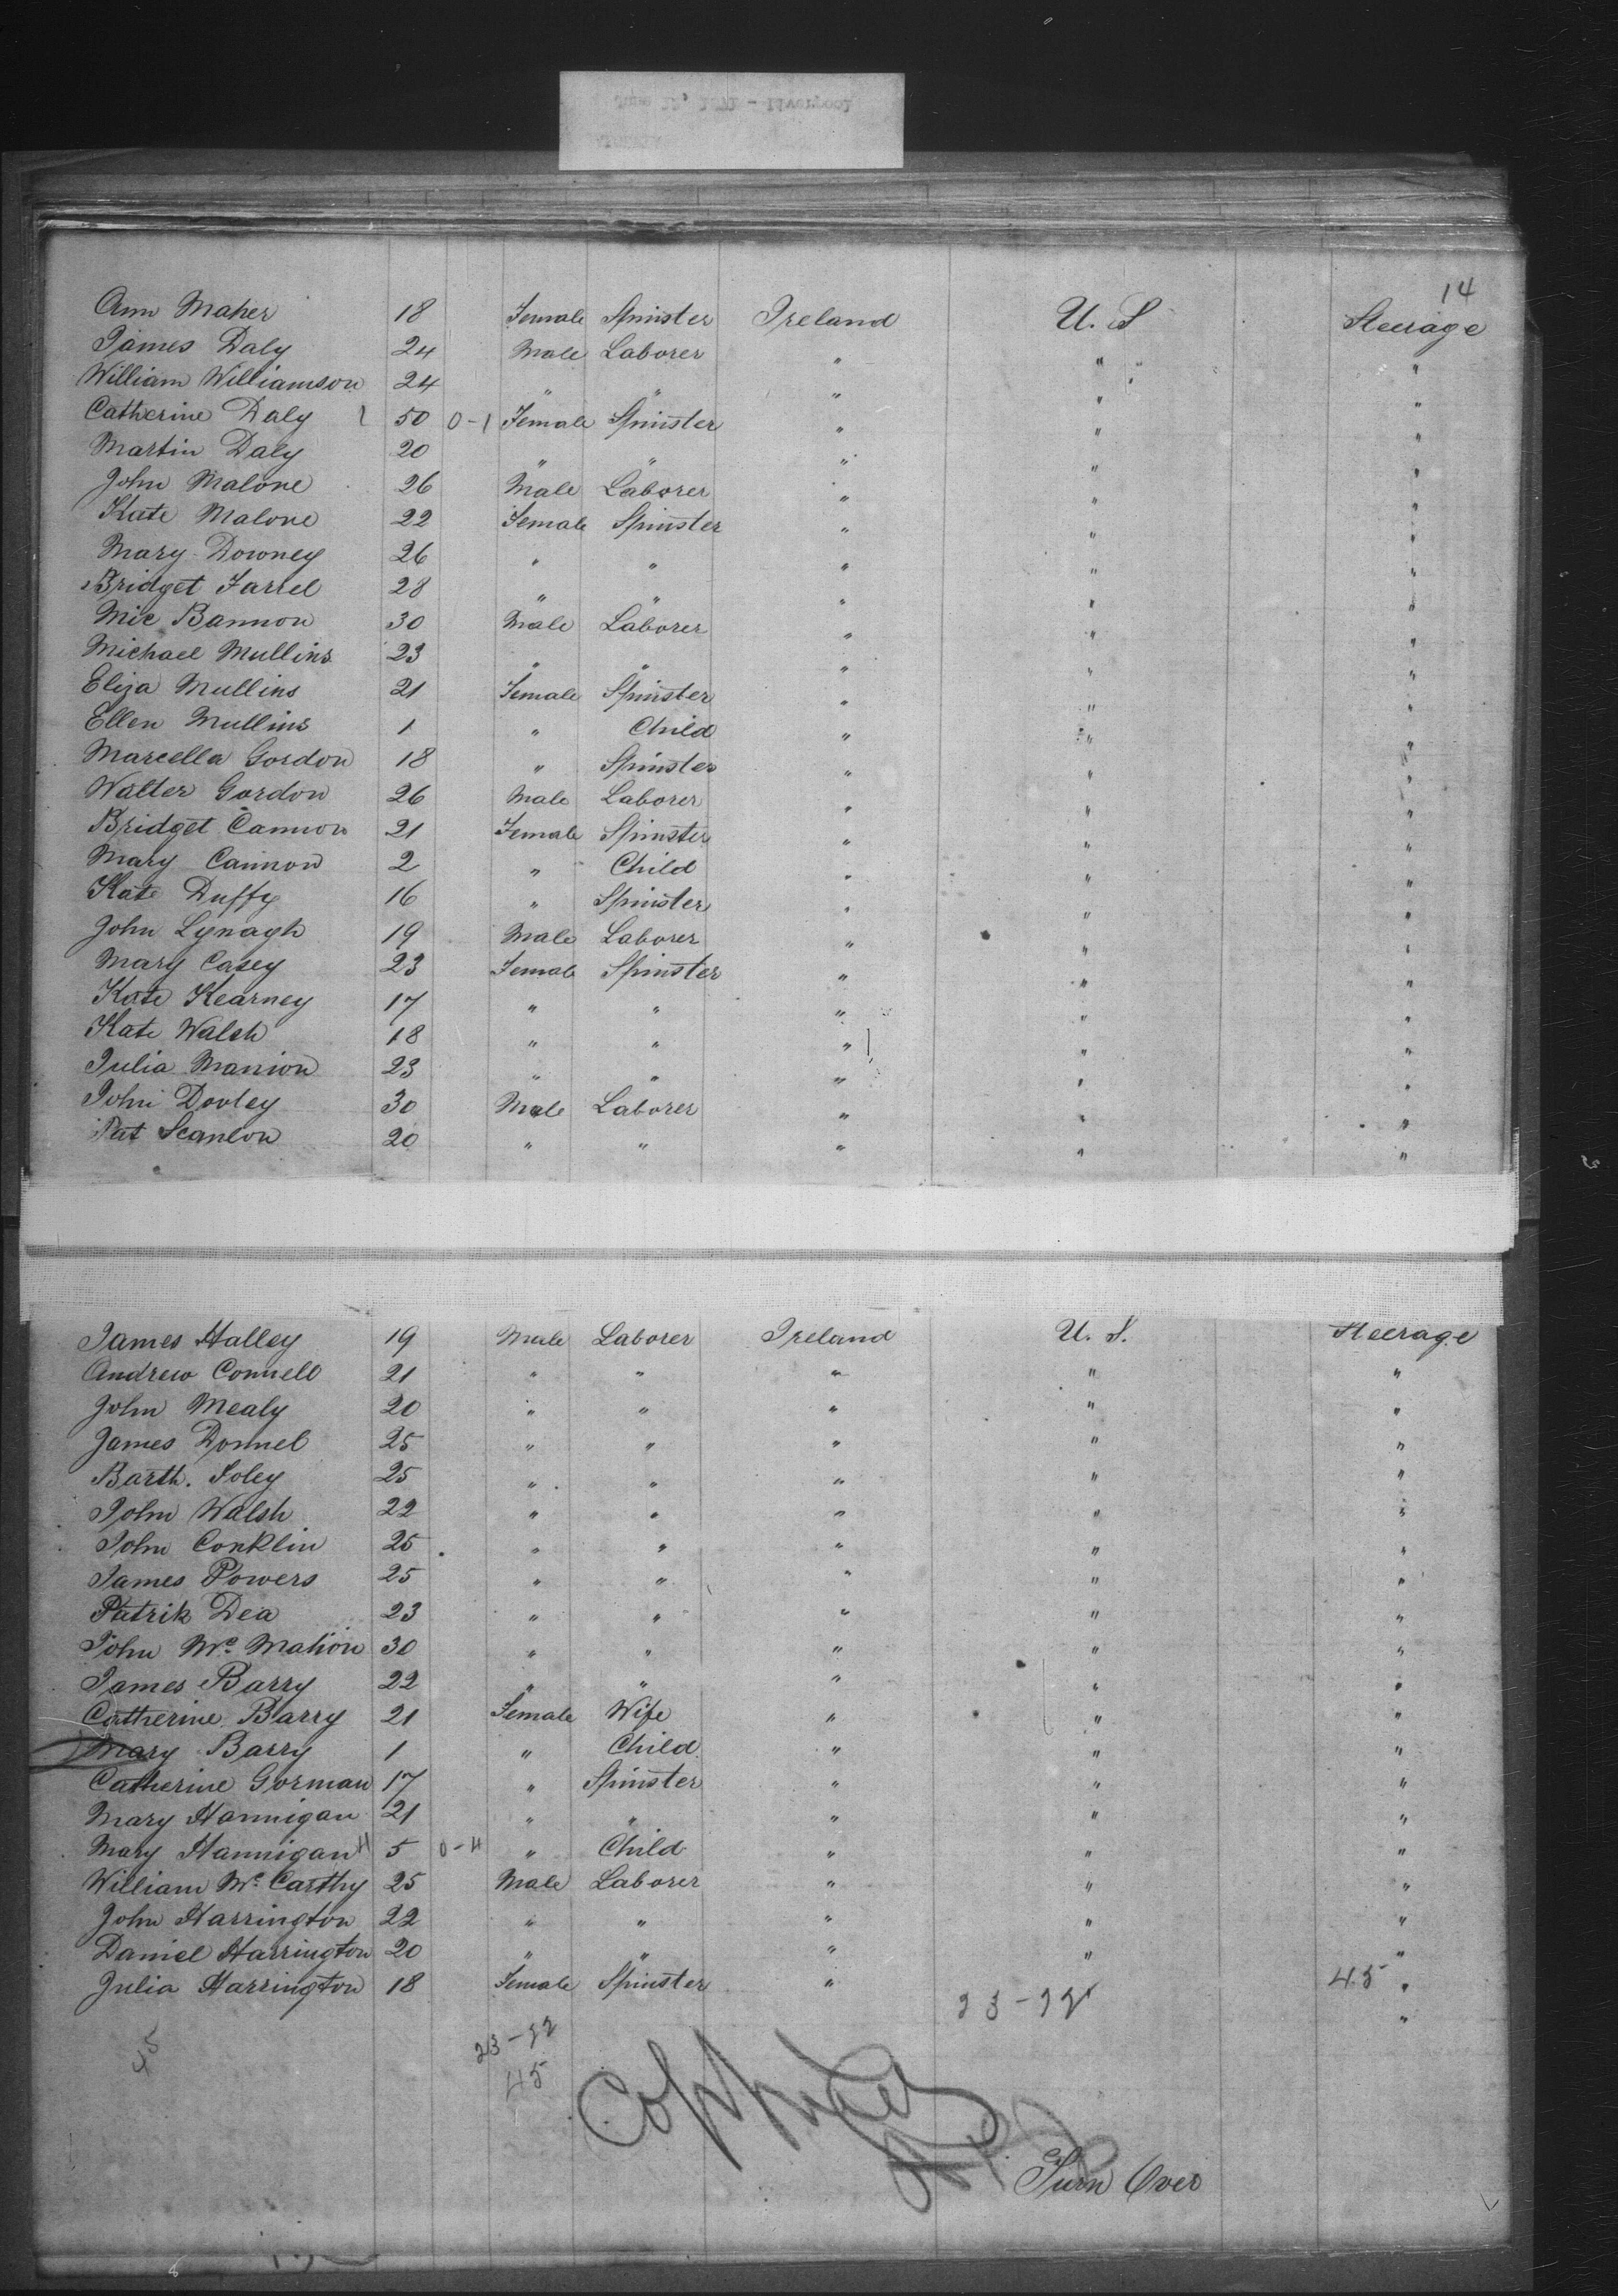 14
Ann Maher 18 Female Spinster Ireland U. S Steerage
James Daly 24 Male Laborer " " "
William Williamson 24 " " " " "
Catherine Daly 1 50 0-1 Female Spinster " " "
Martin Daly 20 " " " " "
John Malone 26 Male Laborer " " "
Kate Malone 22 Female Spinster " " "
Mary Downey 26 " " " " "
Bridget Farrel 28 " " " " "
Mic Bannon 30 Male Laborer " " "
Michael Mullins 23 " " " " "
Eliza Mullins 21 Female Spinster " " "
Ellen Mullins 1 " Child " " "
Marcella Gordon 18 " Spinster " " "
Walter Gordon 26 Male Laborer " " "
Bridget Cannon 21 Female Spinster " " "
Mary Cannon 2 " Child " " "
Kate Duffy 16 " Spinster " " "
John Lynagh 19 Male Laborer " " "
Mary Casey 23 Female Spinster " " "
Kate Kearney 17 " " " " "
Kate Walsh 18 " " " " "
Julia Manion 23 " " " " "
John Dooley 30 Male Laborer " " "
Pat Scanlon 20 " " " " "
James Halley 19 Male Laborer Ireland U. S. Steerage
Andrew Connell 21 " " " " "
John Mealy 20 " " " " "
James Donnel 25 " " " " "
Barth. Foley 25 " " " " "
John Walsh 22 " " " " "
John Conklin 25 " " " " "
James Powers 25 " " " " "
Patrik Dea 23 " " " " "
John Mc. Mahon 30 " " " " "
James Barry 22 " " " " "
Catherine Barry 21 Female Wife " " "
Mary Barry 1 " Child " " "
Catherine Gorman 17 " Spinster " " "
Mary Hannigan 21 " " " " "
Mary Hannigan 5 0-4 " Child " " "
William Mc. Carthy 25 Male Laborer " " "
John Harrington 22 " " " " "
Daniel Harrington 20 " " " " "
Julia Harrington 18 Female Spinster " 45 "
45
45
Copied
Turn Over